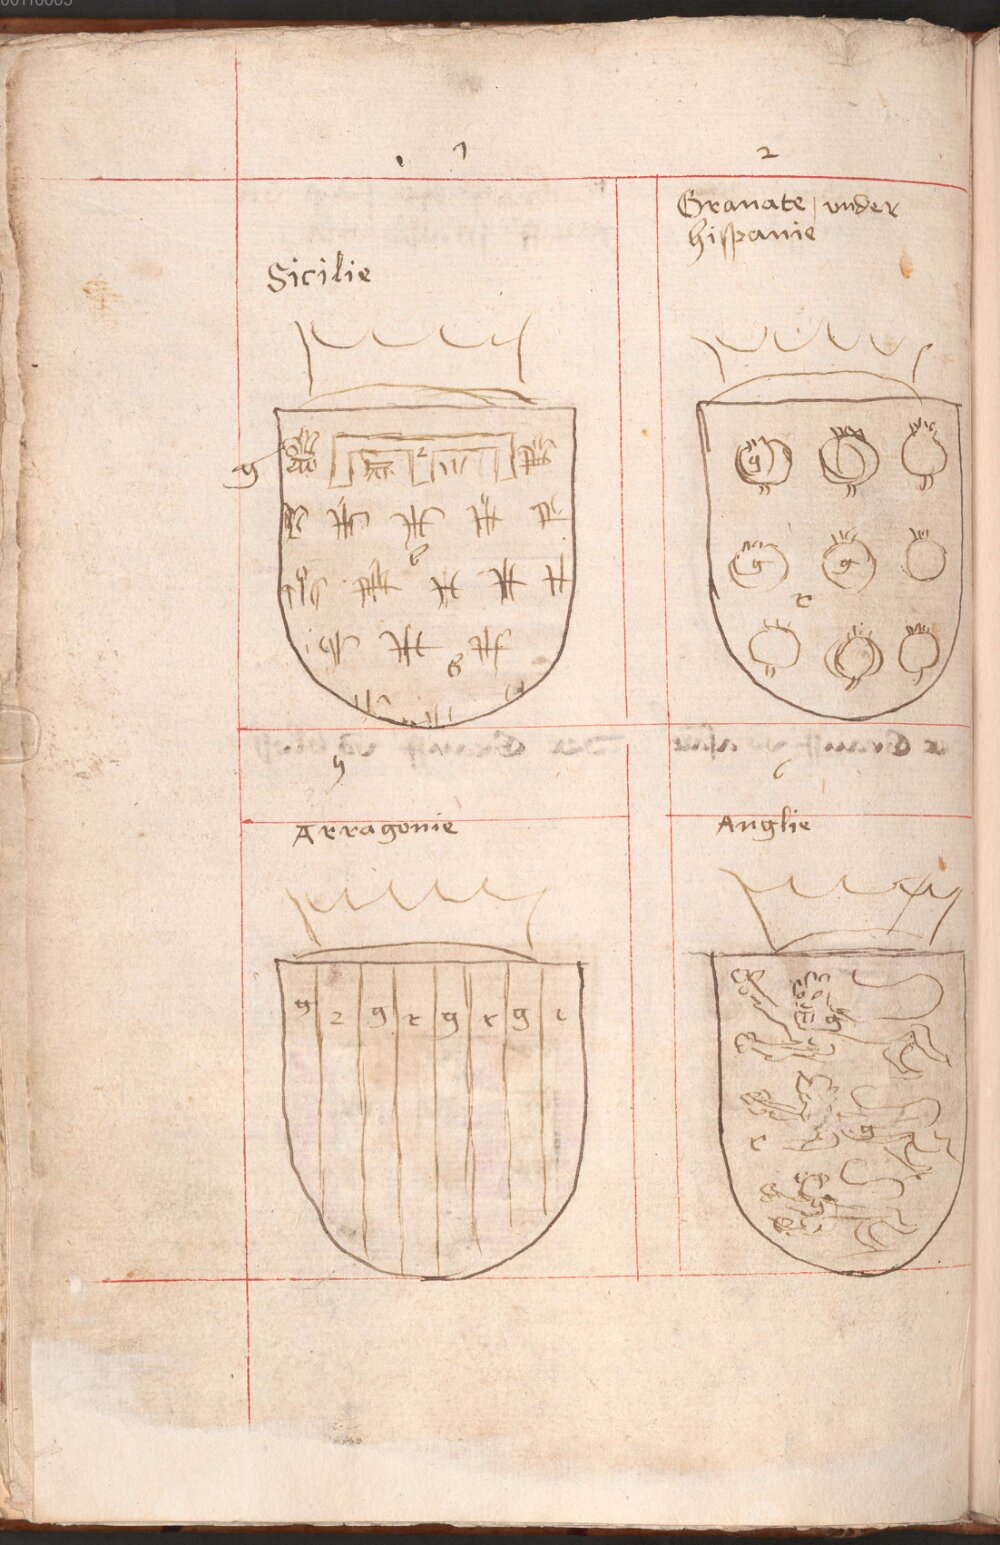 1
2
Sicilie
Granate under
hispanie
g
2
b
b
g
g
g
r
5
6
Arragonie
Anglie
g 2 g r g r g r
g
r
g
g